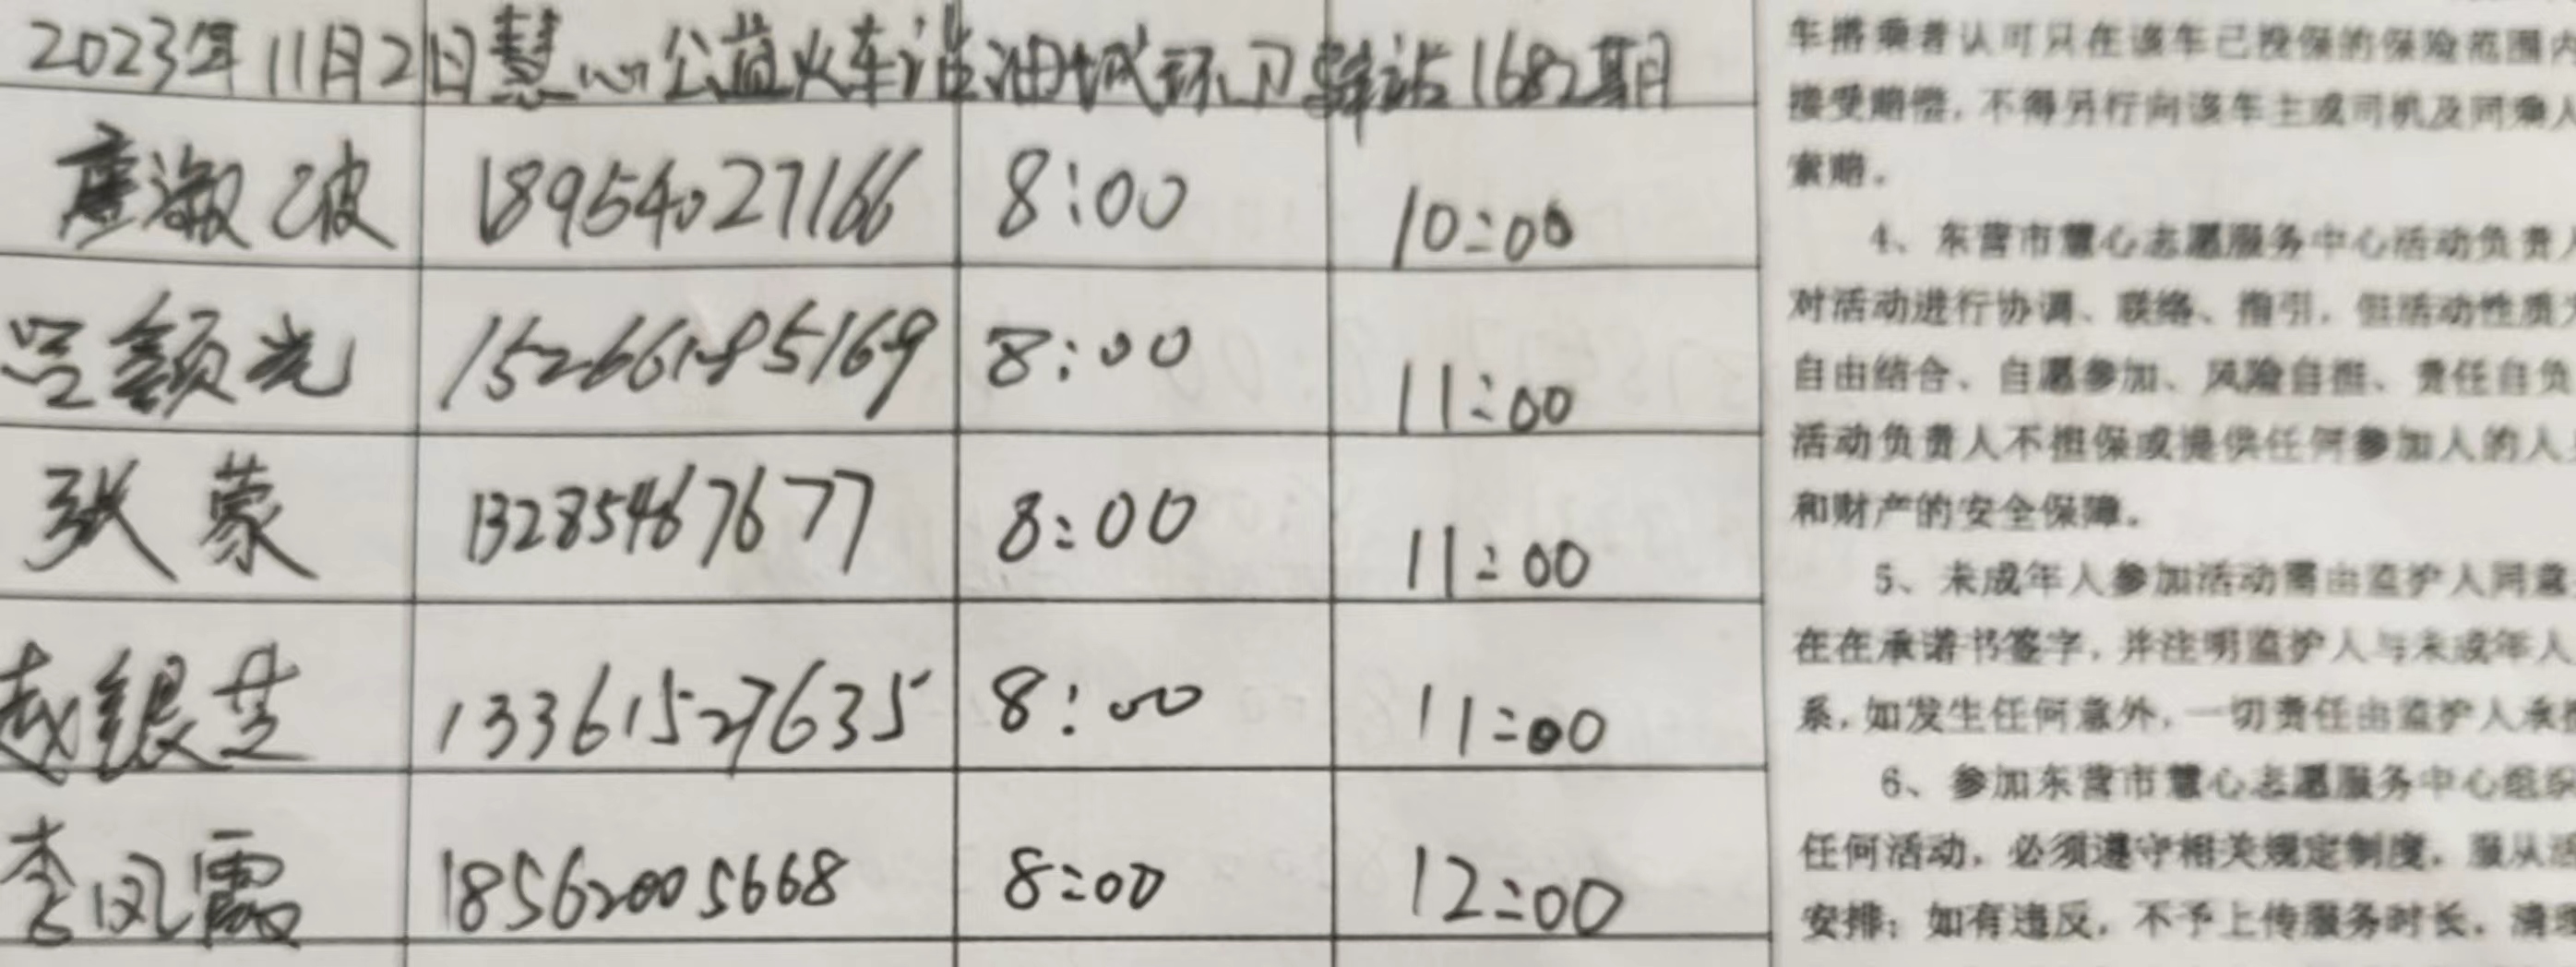 2023年11月2日慧心公益火车站油城环卫驿站1682期
唐淑波 18954027166 8:00 10:00
吕颜光 15266185169 8:00 11:00
张蒙 13285467677 8:00 11:00
赵银芝 13361527635 8:00 11:00
李凤霞 18562005668 8:00 12:00
车搭乘者认可只在该车已投保的保险范围内
接受赔偿,不得另行向该车主或司机及同乘人
索赔。
4、东营市慧心志愿服务中心活动负责人
对活动进行协调、联络、指引,但活动性质为
自由结合、自愿参加、风险自担、责任自负
活动负责人不担保或提供任何参加人的人
和财产的安全保障。
5、未成年人参加活动需由监护人同意
在在承诺书签字,并注明监护人与未成年人
系,如发生任何意外,一切责任由监护人承担
6、参加东营市慧心志愿服务中心组织
任何活动,必须遵守相关规定制度,服从
安排;如有违反,不予上传服务时长,清